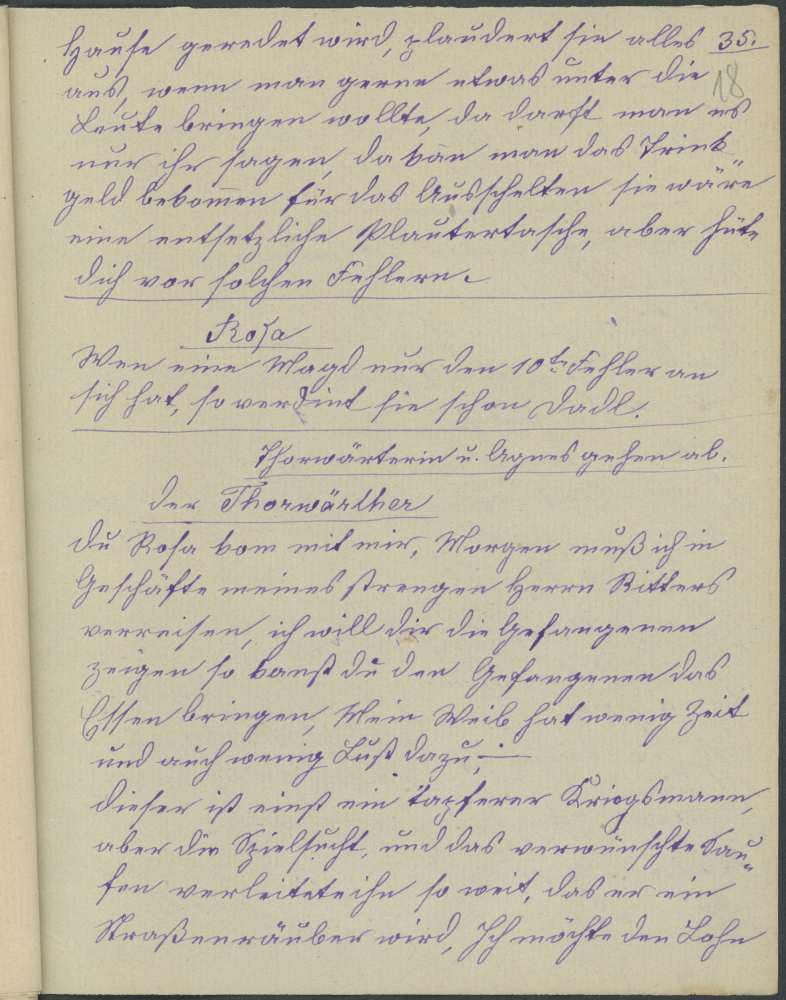 Hause geredet wird, plaudert sie alles 35.
aus, wenn man gerne etwas unter die 18
Leute bringen wollte, da darft man es
nur ihr sagen, da kan man das Trink
geld bekomen für das Ausschelten sie wäre
eine entsetzliche Plautertasche, aber hüte
dich vor solchen Fehlern.
Rosa
Wen eine Magd nur den 10te Fehler an
sich hat, so verdint sie schon Dadl.
Thorwärterin u. Agnes gehen ab.
der Thorwärther
du Rosa kom mit mir, Morgen muß ich in
Geschäfte meines strengen Herrn Ritters
verreisen, ich will dir die Gefangenen
zeigen so kanst du den Gefangenen das
Essen bringen, Mein Weib hat wenig Zeit
und auch wenig Lust dazu, —
dieser ist einst ein tapferer Kriegsmann,
aber die Spielsucht, und das verwünschte Sau„
fen verleitete ihn so weit, das er ein
Straßenräuber wird, Ich möchte den Lohn